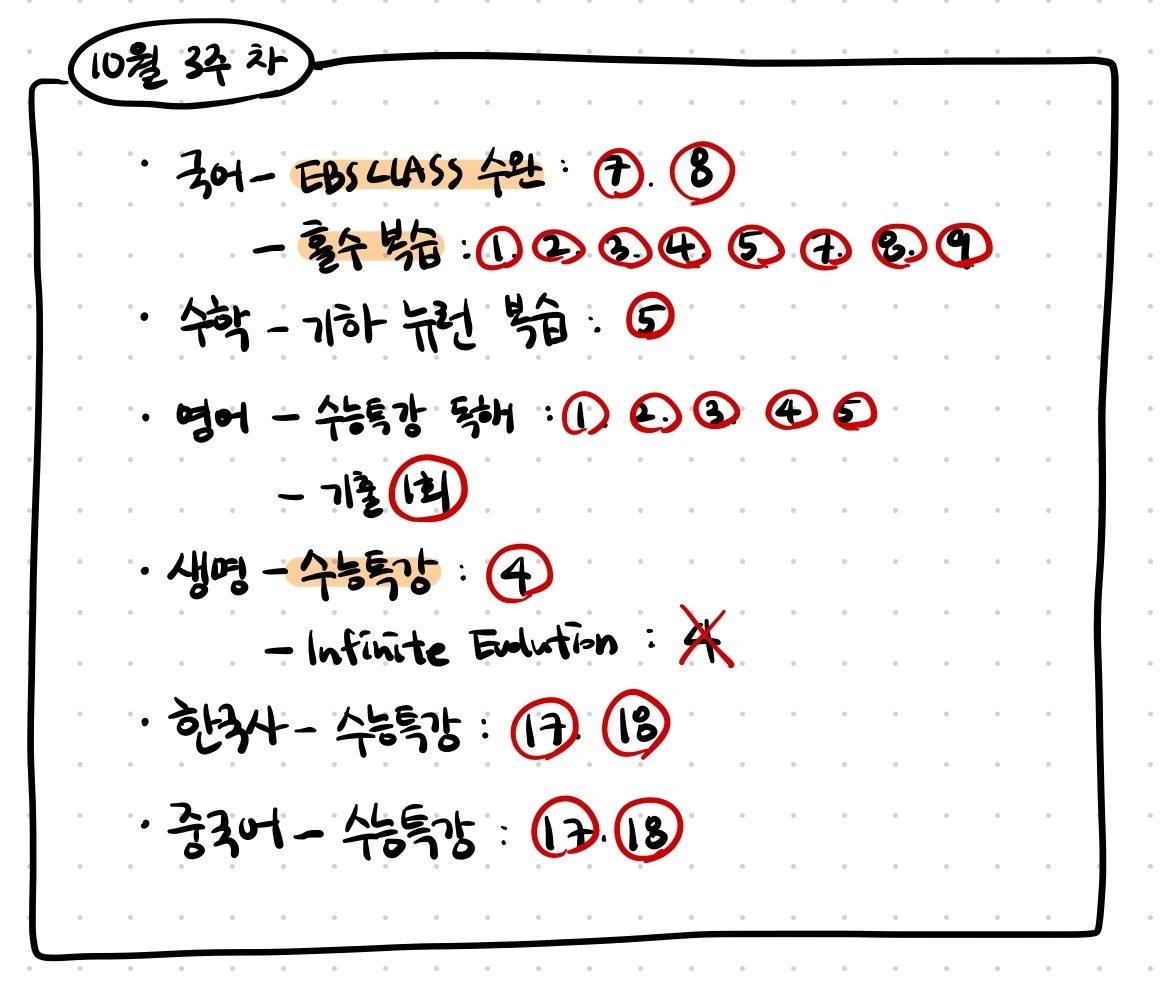 10월 3주 차
· 국어 - EBS CLASS 수완 : 7. 8
- 홀수 복습 : 1. 2. 3. 4. 5. 7. 8. 9
· 수학 - 기하 뉴런 복습 : 5
· 영어 - 수능특강 독해 : 1. 2. 3. 4 5
- 기출 1회
· 생명 - 수능특강 : 4
- Infinite Evolution : 4
· 한국사 - 수능특강 : 17. 18
· 중국어 - 수능특강 : 17. 18